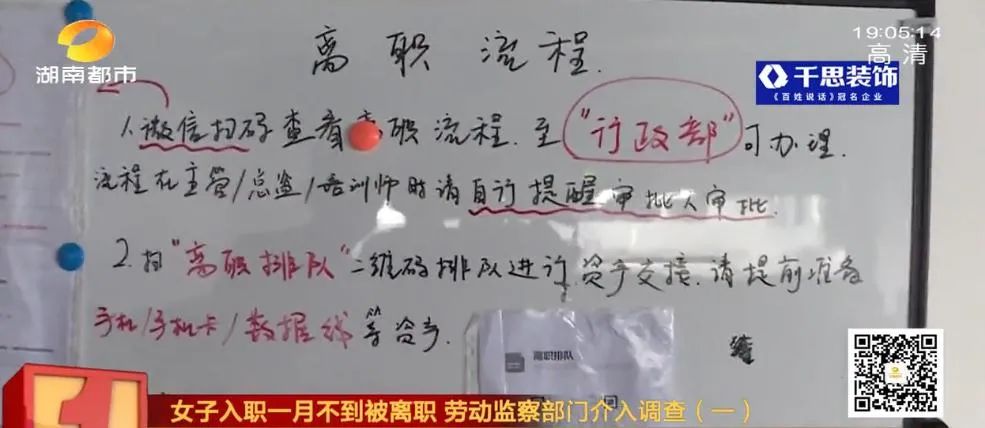 湖南都市
19:05:14
高清
千思装饰
《百姓说话》冠名企业
离职流程.
1.微信扫码查看离职流程.至"行政部"可办理.
流程在主管/总监/培训师时请自行提醒审批人审批.
2.扫"离职排队"二维码排队进行资产交接.请提前准备
手机/手机卡/数据线等资产.
离职排队
女子入职一月不到被离职 劳动监察部门介入调查(一)